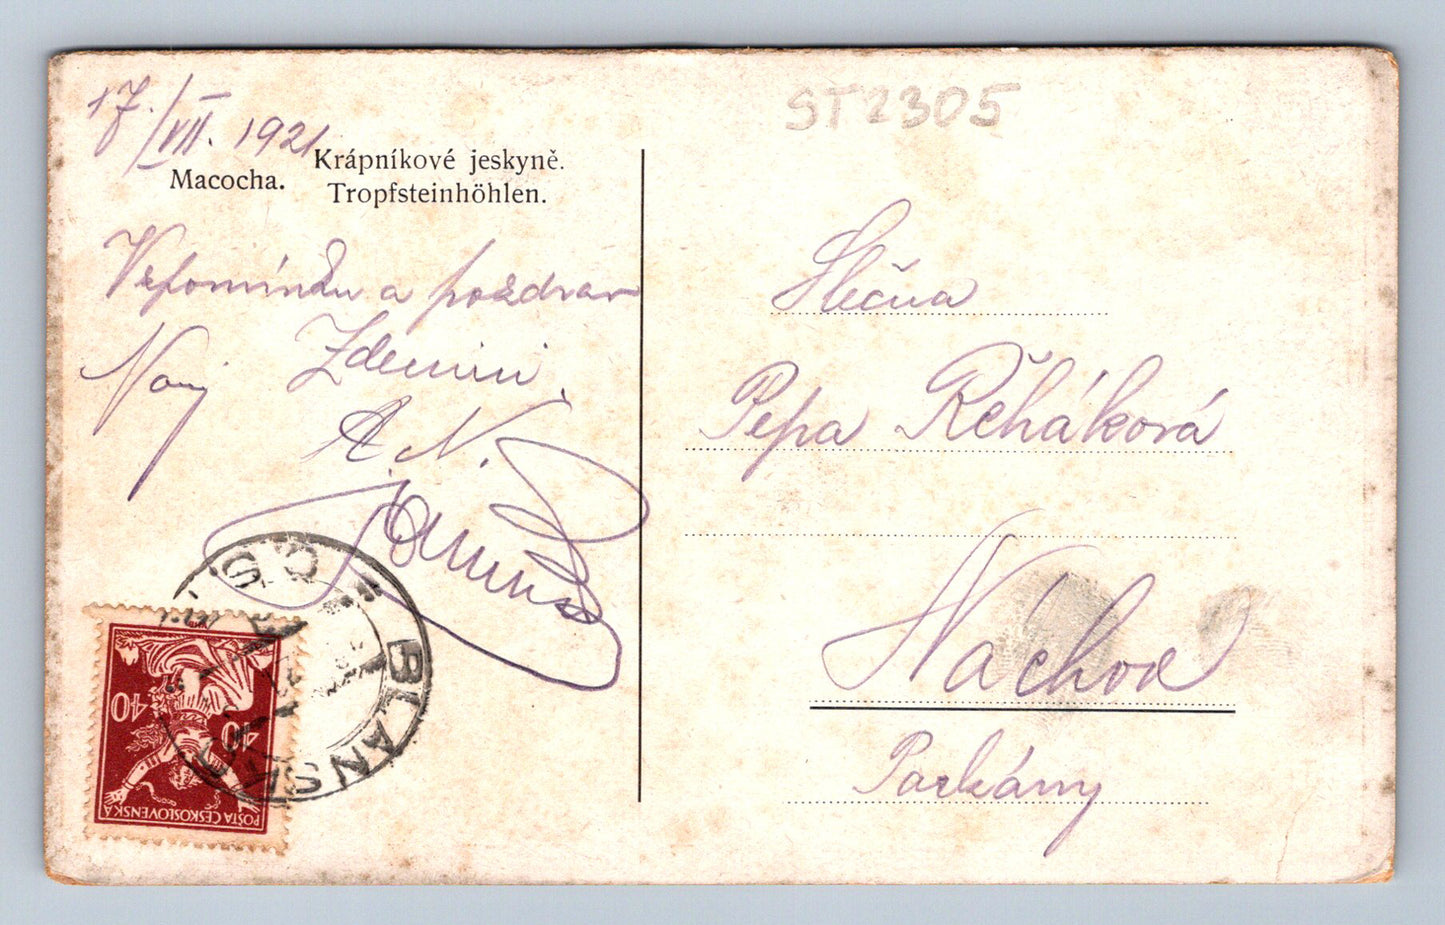 17./VII. 1921
Macocha.
Krápníkové jeskyně.
Tropfsteinhöhlen.
Vzpomínku a pozdrav
Zdenini.
A. N.
ST2305
Slečna
Pepa Řeháková
Náchod
Parkány
BLANSKO
Č.S.
40
40
POŠTA ČESKOSLOVENSKÁ